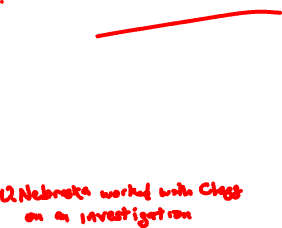 Nebraska worked with Clegg
on an investigation